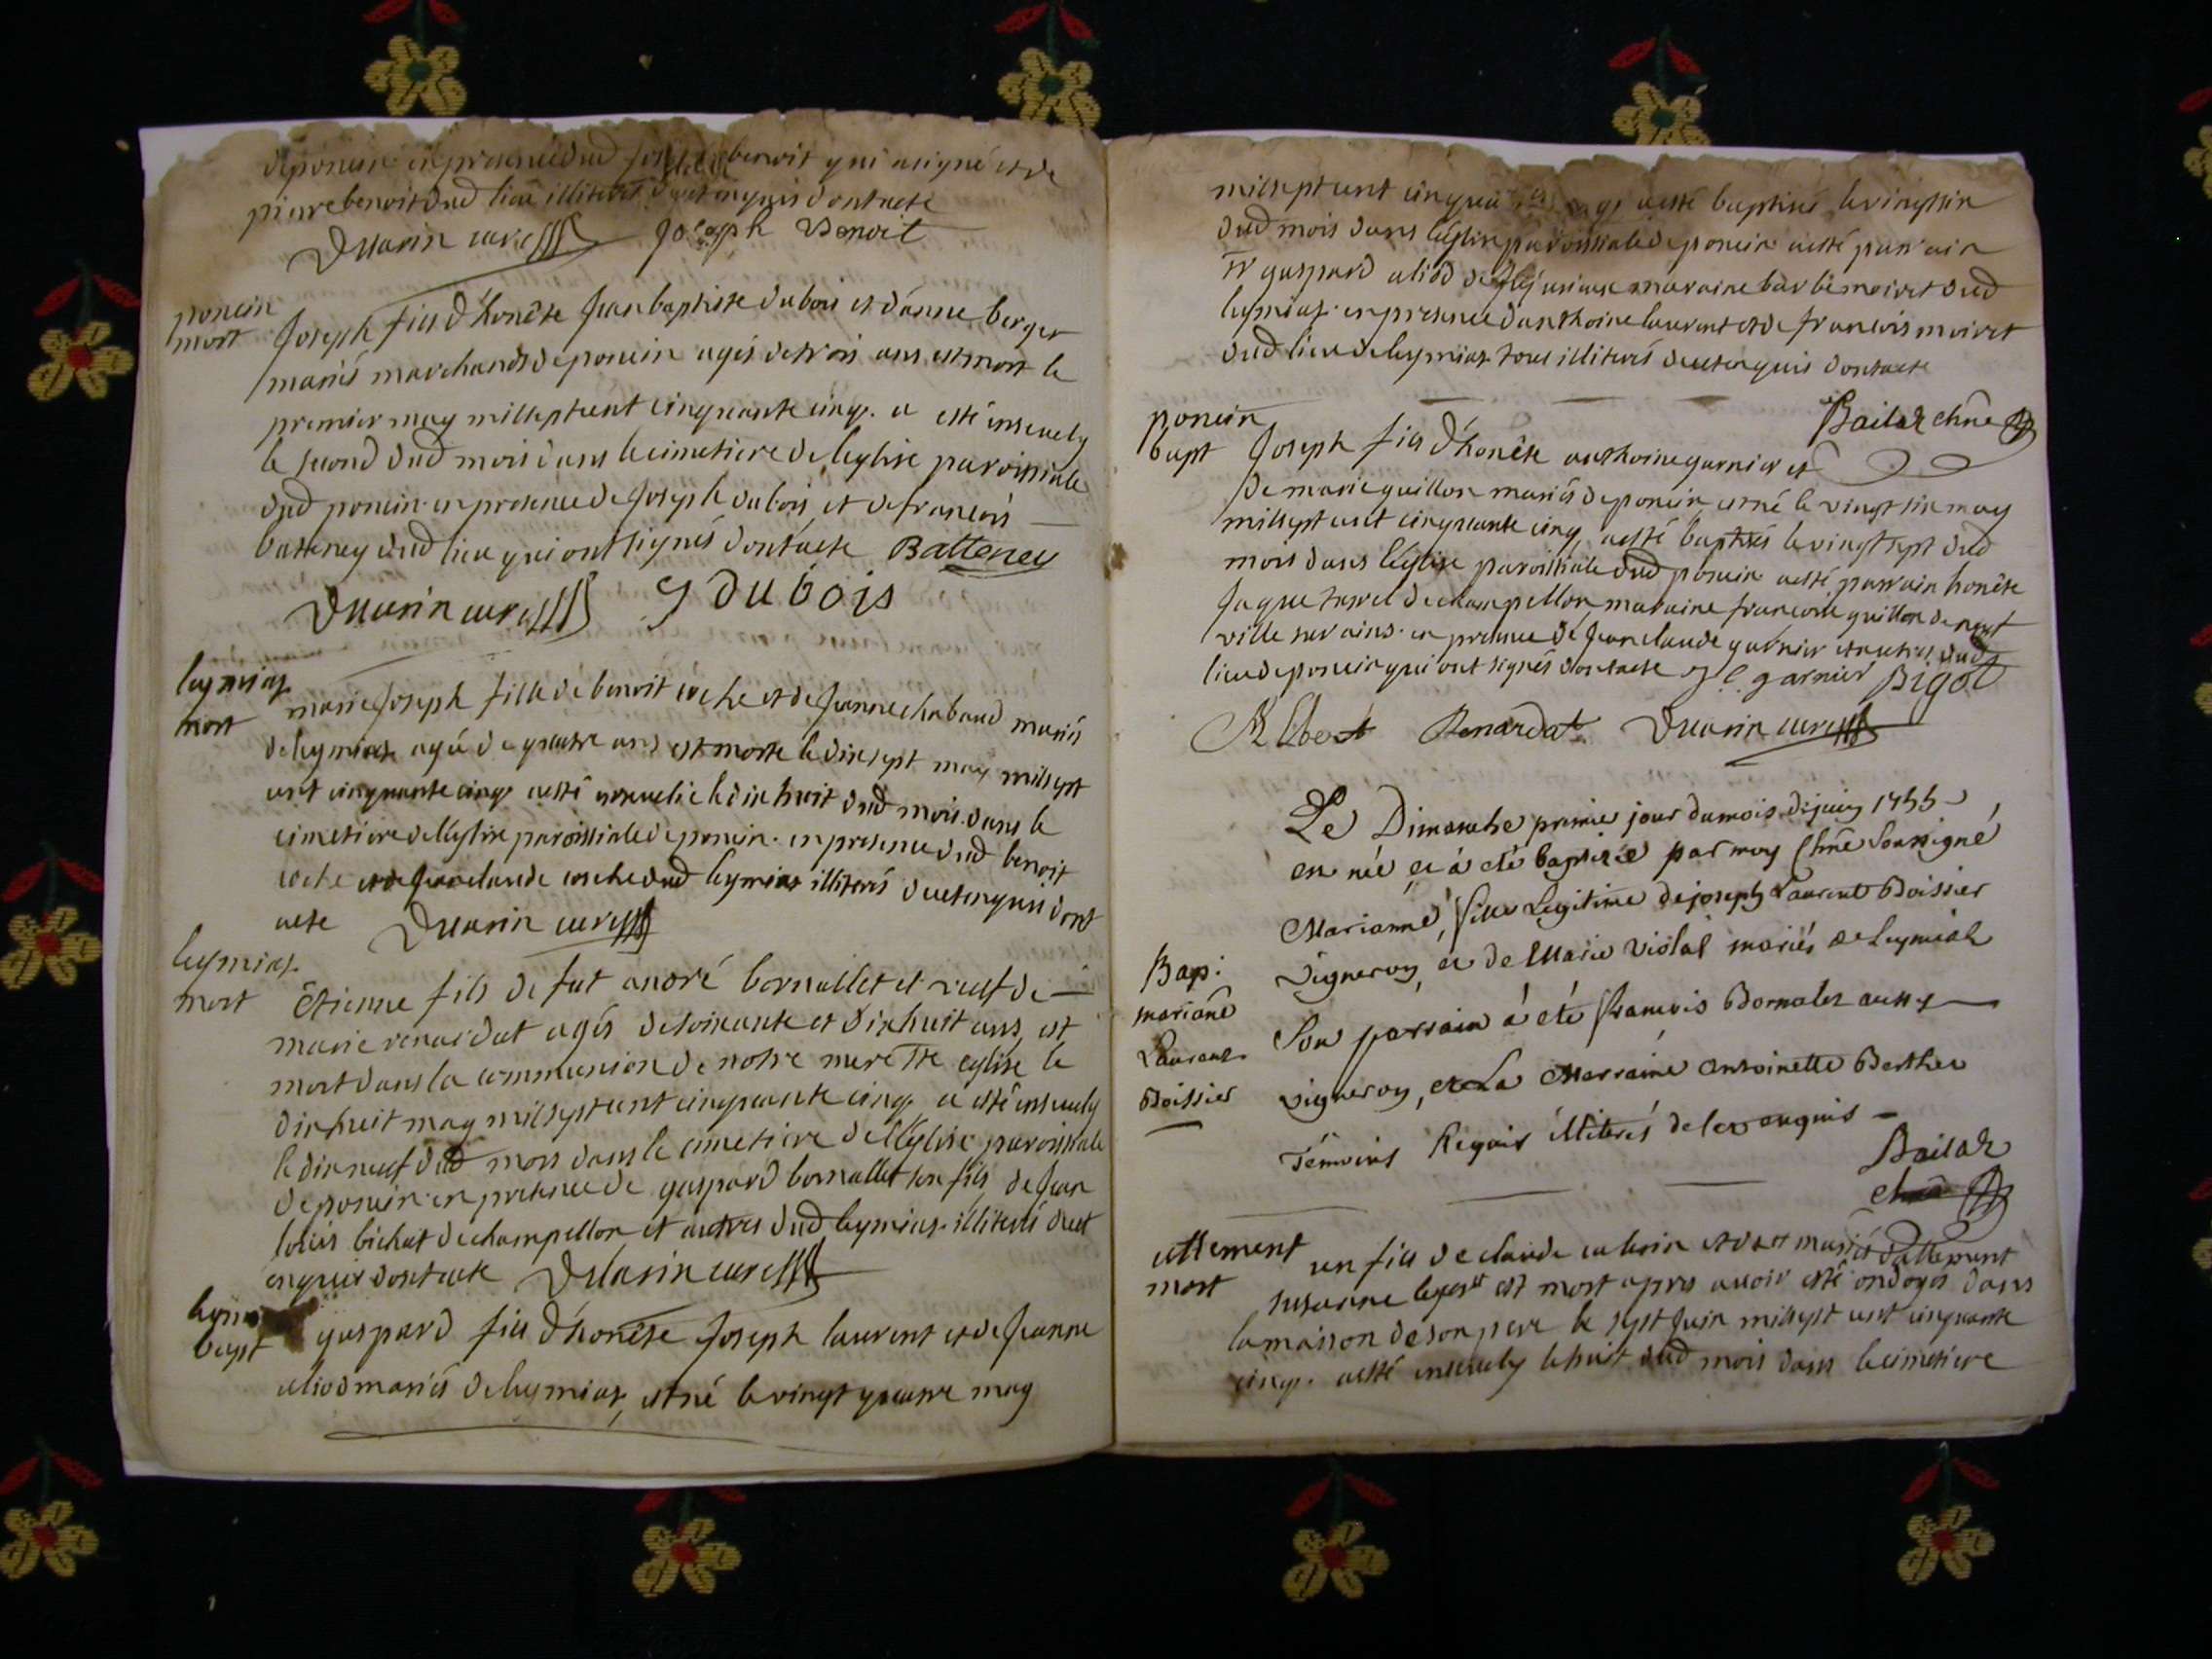 deponcin en presence dud joseph benoit qui a signé et de
pierre benoit dud lieu illiterés enquis dont acte
Duarin curé Joseph Benoit
poncin
mort
Joseph fils d'honête Jean baptiste dubois et d'anne berger
mariés marchands de poncin agés de trois ans est mort le
premier may mil sept cent cinquante cinq. a esté ensevely
le second dud mois dans le cimetiere de l'eglise paroissiale
dud poncin. en presence de Joseph dubois et de francois
batteney dud lieu qui ont signés dont acte Batteney
Duarin curé J dubois
leymiat
mort
marie Joseph fille de benoit coche et de Jeanne chabaud mariés
de leymiat agée de quatre ans est morte le dix sept may mil sept
cent cinquante cinq aesté ensevelie le dix huit dud mois dans le
cimetiere de l'eglise paroissiale de poncin. en presence dud benoit
coche et de Jean claude coche dud leymiat illiterés de ce enquis dont
acte Duarin curé
leymiat
mort
Etienne fils de fut andré bornallet et veuf de
marie renardat agés de soixante et dix huit ans, est
mort dans la communion de notre mere Ste eglise le
dix huit may mil sept cent cinquante cinq a esté ensevely
le dix neuf dud mois dans le cimetiere de l'eglise paroissiale
de poncin. en presence de gaspard bornallet son fils, de Jean
louis bichat de champellon et autres dud leymiat. illiterés de ce
enquis dont acte Duarin curé
bapt
gaspard fils d'honête Joseph laurent et de Jeanne
aliod mariés de leymiat, est né le vingt quatre may
mil sept cent aesté baptisés le vingt six
dud mois dans l'église paroissiale de poncin aesté parrain
Sr gaspard aliod maraine barbe moiret dud
leymiat. en presence d'anthoine laurent et de francois moiret
dud lieu de leymiat tous illiterés de ce enquis dont acte
Bailat chne
poncin
bapt
Joseph fils d'honête anthoine garnier et
de marie guillon mariés de poncin, est né le vingt six may
mil sept cent cinquante cinq aesté baptisés le vingt sept dud
mois dans l'église paroissiale dud poncin aesté parrain honête
Jaque de champellon, maraine francoise guillon de neuf
ville sur ains. en presence de Jean claude garnier et autres dud
lieu de poncin qui ont signés dont acte J C garnier Bigot
Albert Renardat Duarin curé
Le Dimanche premier jour du mois de juin 1755
est née et a été baptisée par moy Chne Soussigné
Marianne, fille Legitime de joseph Laurent Boissier
vigneron, et de Marie Violat mariés de Leymiat
Bap:
mariane
Laurent
Boissier
Son parrain a été francois Bornalet aussy
vigneron, et La Marraine antoinette Berthet
Témoins Requis illiterés de ce enquis
Bailat
chne
allement
mort
un fils de claude cuberin et de mariés d'allement
susanne est mort apres avoir esté ondoyés dans
la maison de son pere le sept Juin mil sept cent cinquante
cinq. aesté ensevely le huit dud mois dans le cimetiere